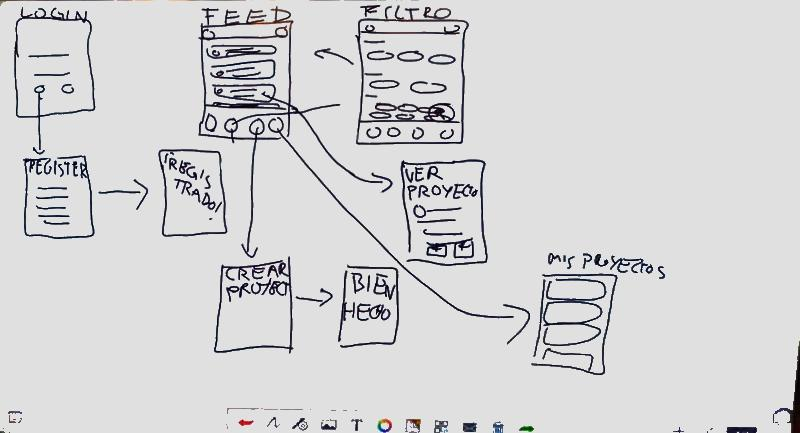 LOGIN
FEED
FILTRO
REGISTER
¡REGIS
TRADO!
VER
PROYECTO
CREAR
PROYECT
BIEN
HECHO
MIS PROYECTOS
T